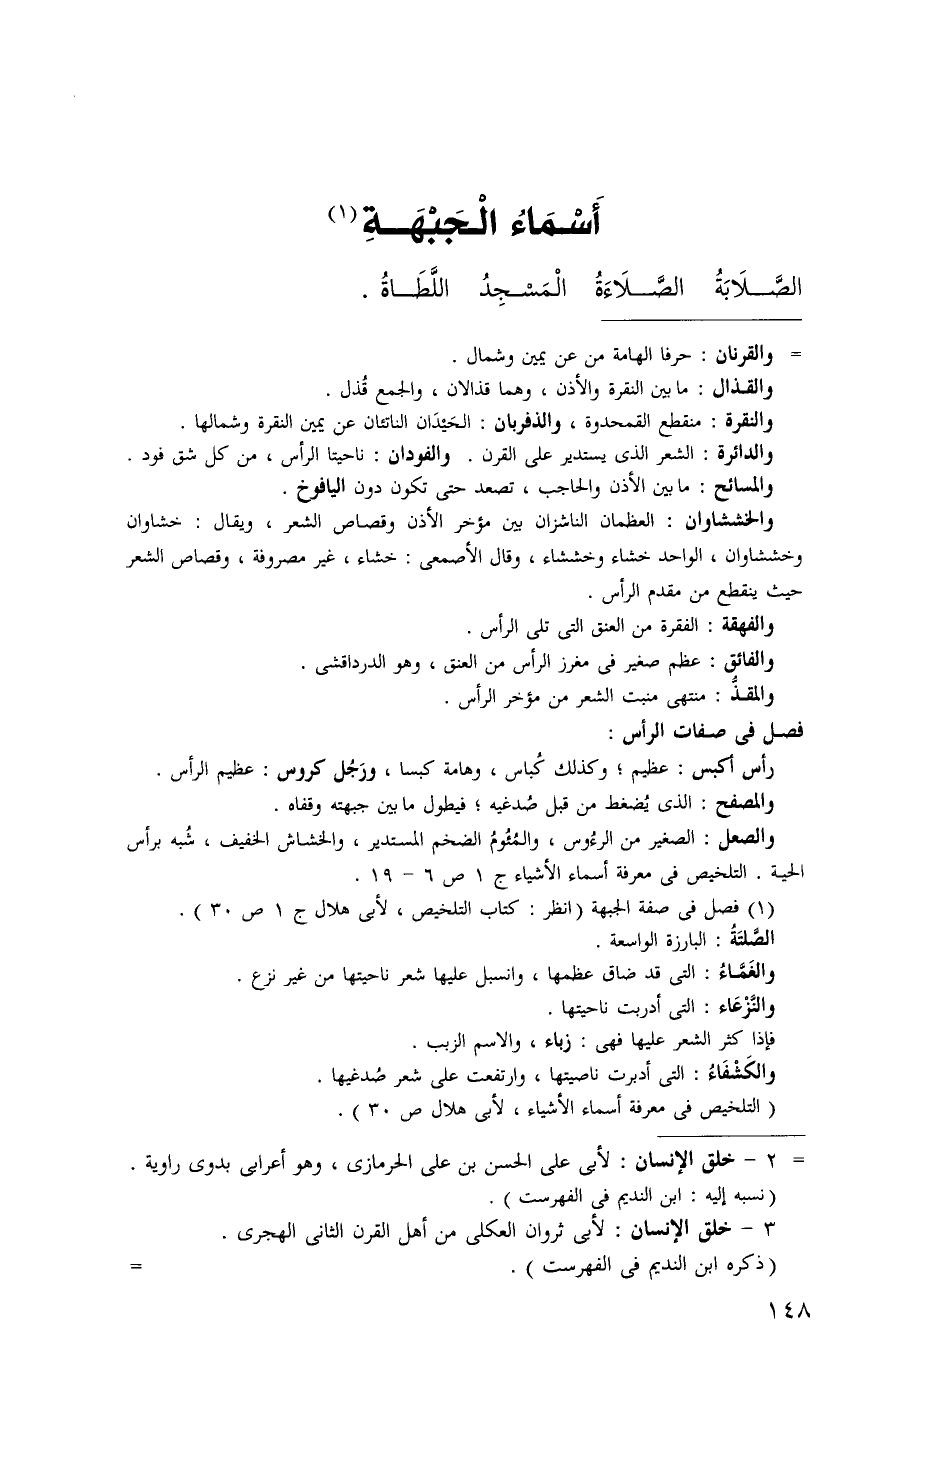 أَسْمَاءُ الْجَبْهَةِ (١)
الصَّلَابَةُ الصَّلَاءَةُ الْمَسْجِدُ اللَّطَاةُ .
= والقرنان : حرفا الهامة من عن يمين وشمال .
والقذال : ما بين النقرة والأذن ، وهما قذالان ، والجمع قُذل .
والنقرة : منقطع القمحدوة ، والذفريان : الحَيْدَان الناتئان عن يمين النقرة وشمالها .
والدائرة : الشعر الذى يستدير على القرن . والفودان : ناحيتا الرأس ، من كل شق فود .
والمسائح : ما بين الأذن والحاجب ، تصعد حتى تكون دون اليافوخ .
والخششاوان : العظمان الناشزان بين مؤخر الأذن وقصاص الشعر ، ويقال : خشاوان
وخششاوان ، الواحد خشاء وخششاء ، وقال الأصمعى : خشاء ، غير مصروفة ، وقصاص الشعر
حيث ينقطع من مقدم الرأس .
والفهقة : الفقرة من العنق التى تلى الرأس .
والفائق : عظم صغير فى مغرز الرأس من العنق ، وهو الدرداقشى .
والمقذُّ : منتهى منبت الشعر من مؤخر الرأس .
فصل فى صفات الرأس :
رأس أكبس : عظيم ؛ وكذلك كُباس ، وهامة كبسا ، ورَجُل كروس : عظيم الرأس .
والمصفح : الذى يُضغط من قبل صُدغيه ؛ فيطول ما بين جبهته وقفاه .
والصعل : الصغير من الرءُوس ، والمُئومُ الضخم المستدير ، والخشاش الخفيف ، شُبه برأس
الحية . التلخيص فى معرفة أسماء الأشياء ج ١ ص ٦ – ١٩ .
(١) فصل فى صفة الجبهة (انظر : كتاب التلخيص ، لأبى هلال ج ١ ص ٣٠ ) .
الصَّلتَةُ : البارزة الواسعة .
والغَمَّاءُ : التى قد ضاق عظمها ، وانسبل عليها شعر ناحيتها من غير نزع .
والنَّزْعَاء : التى أدربت ناحيتها .
فإذا كثر الشعر عليها فهى : زباء ، والاسم الزبب .
والكَشْفَاءُ : التى أدبرت ناصيتها ، وارتفعت على شعر صُدغيها .
( التلخيص فى معرفة أسماء الأشياء ، لأبى هلال ص ٣٠ ) .
= ٢ – خلق الإنسان : لأبى على الحسن بن على الحرمازى ، وهو أعرابى بدوى راوية .
(نسبه إليه : ابن النديم فى الفهرست ) .
٣ – خلق الإنسان : لأبى ثروان العكلى من أهل القرن الثانى الهجرى .
(ذكره ابن النديم فى الفهرست ) . =
١٤٨